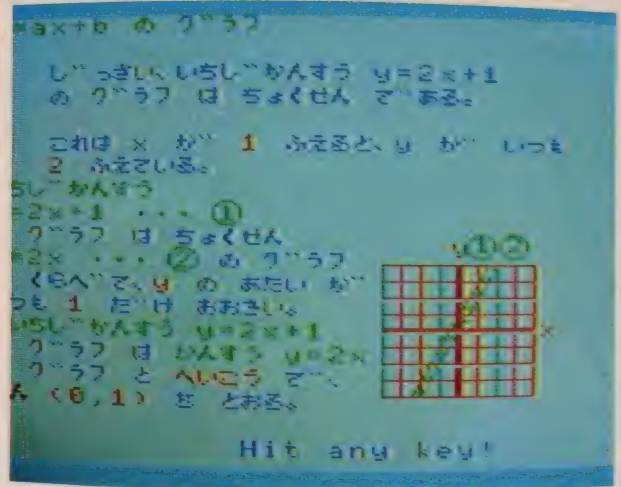 =ax+b の グラフ
じっさい、いちじかんすう y=2x+1
の グラフ は ちょくせん である。
これは x が 1 ふえると、y が いつも
2 ふえている。
ちじかんすう
=2x+1 ・・・ ①
グラフ は ちょくせん
=2x ・・・ ② の グラフ
くらべて、y の あたい が
つも 1 だけ おおきい。
いちじかんすう y=2x+1
グラフ は かんすう y=2x
グラフ と へいこう で、
ん (0,1) を とおる。
y①②
x
Hit any key!